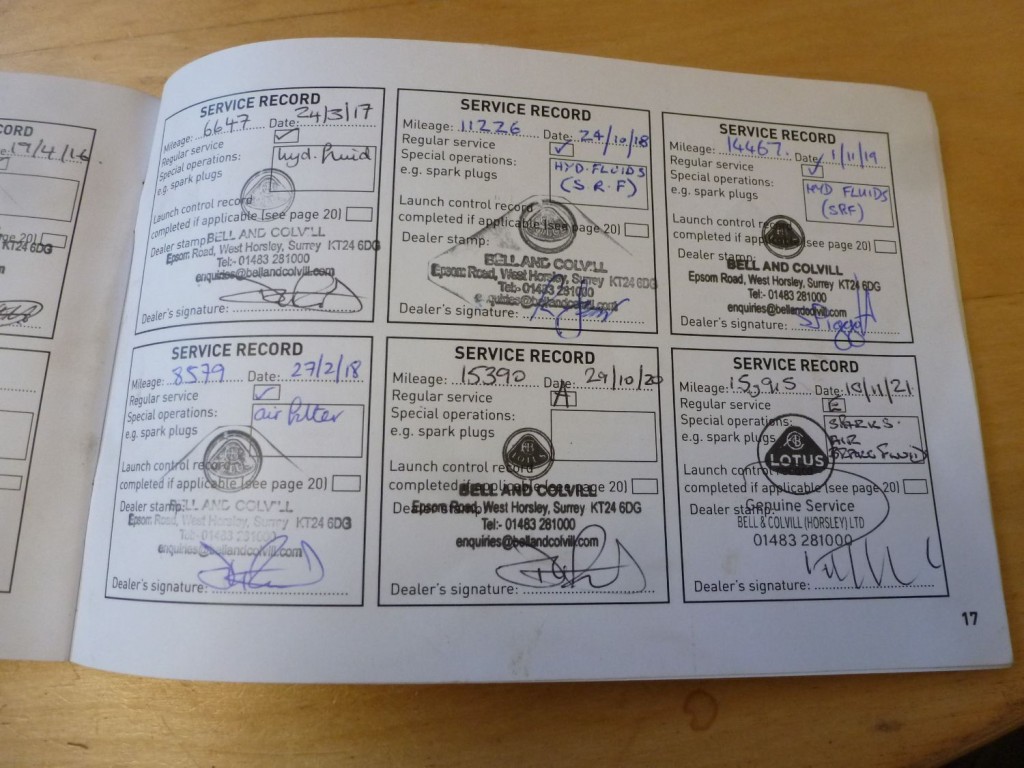 CORD
19/4/16
age 20)
KT24 6DG
SERVICE RECORD
Mileage: 6647 Date: 24/3/17
Regular service ✓
Special operations: hyd. fluid
e.g. spark plugs
Launch control record
completed if applicable (see page 20)
Dealer stamp:
BELL AND COLVILL
Epsom Road, West Horsley, Surrey KT24 6DG
Tel:- 01483 281000
enquiries@bellandcolvill.com
Dealer's signature:
SERVICE RECORD
Mileage: 8579 Date: 27/2/18
Regular service ✓
Special operations: air filter
e.g. spark plugs
Launch control record
completed if applicable (see page 20)
Dealer stamp:
BELL AND COLVILL
Epsom Road, West Horsley, Surrey KT24 6DG
Tel:- 01483 281000
enquiries@bellandcolvill.com
Dealer's signature:
SERVICE RECORD
Mileage: 11226 Date: 24/10/18
Regular service ✓
Special operations: HYD. FLUIDS
e.g. spark plugs (S.R.F)
Launch control record
completed if applicable (see page 20)
Dealer stamp:
BELL AND COLVILL
Epsom Road, West Horsley, Surrey KT24 6DG
Tel:- 01483 281000
enquiries@bellandcolvill.com
Dealer's signature:
SERVICE RECORD
Mileage: 15390 Date: 29/10/20
Regular service A
Special operations:
e.g. spark plugs
Launch control record
completed if applicable (see page 20)
Dealer stamp:
BELL AND COLVILL
Epsom Road, West Horsley, Surrey KT24 6DG
Tel:- 01483 281000
enquiries@bellandcolvill.com
Dealer's signature:
SERVICE RECORD
Mileage: 14467. Date: 1/11/19
Regular service ✓
Special operations: HYD FLUIDS
e.g. spark plugs (SRF)
Launch control record
completed if applicable (see page 20)
Dealer stamp:
BELL AND COLVILL
Epsom Road, West Horsley, Surrey KT24 6DG
Tel:- 01483 281000
enquiries@bellandcolvill.com
Dealer's signature:
SERVICE RECORD
Mileage: 15,915 Date:
Regular service
Special operations: SPARKS.
e.g. spark plugs AIR
BRAKE FLUID
LOTUS
Launch control record
completed if applicable (see page 20)
Dealer stamp:
Genuine Service
BELL & COLVILL (HORSLEY) LTD
01483 281000
Dealer's signature:
17